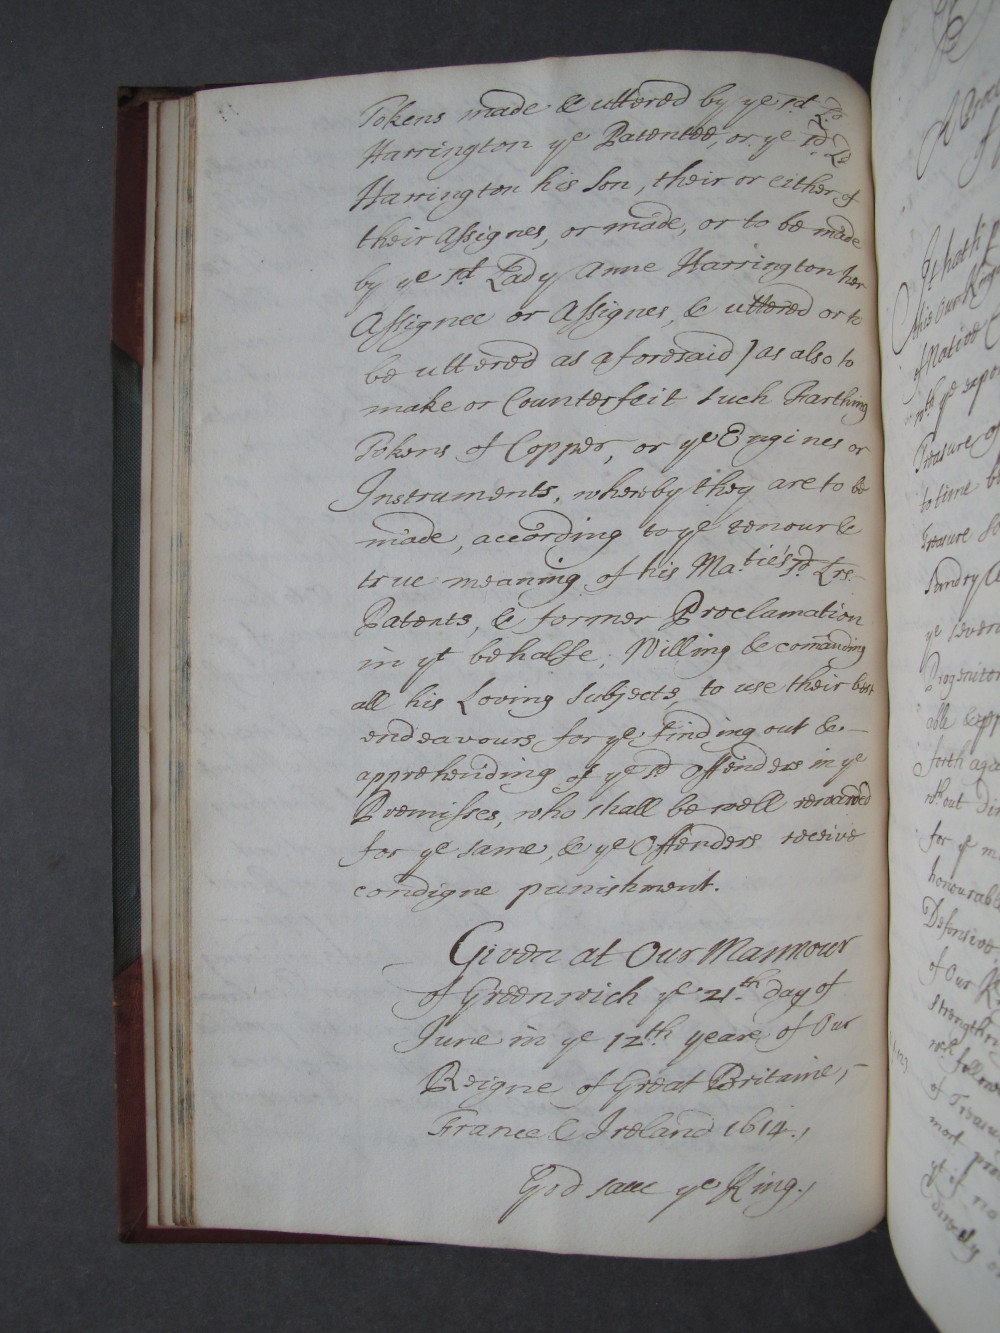 Tokens made & uttered by ye sd Lo
Harrington ye Patentee, or ye sd Lo
Harrington his Son, their or either of
their Assignes, or made, or to be made
by ye sd Lady Anne Harrington her
Assignee or Assignes, & uttered or to
be uttered as aforesaid) as also to
make or Counterfeit such Farthing
Tokens of Copper, or ye Engines or
Instruments, whereby they are to be
made, according to ye tenour &
true meaning of his Maties sd Lrs
Patents, & former Proclamation
in yt behalfe; Willing & comanding
all his Loving Subjects, to use their best
endeavours for ye finding out &
apprehending of ye sd Offenders in ye
Premisses, who shall be well rewarded
for ye same, & ye Offenders receive
condigne punishment.
Given at Our Mannour
of Greenwich ye 21th day of
June in ye 12th yeare of Our
Reigne of Great Britaine,
France & Ireland 1614.
God save ye King.
It hath
this Our King
of Native
wth ye expo
Treasure of
to time b
Treasure
Sundry
ye severa
Progenitor
able & pp
forth aga
wthout Di
for ye m
honourable
Defensive
of Our
strength
wch follow
of Treasu
most pre
yt if